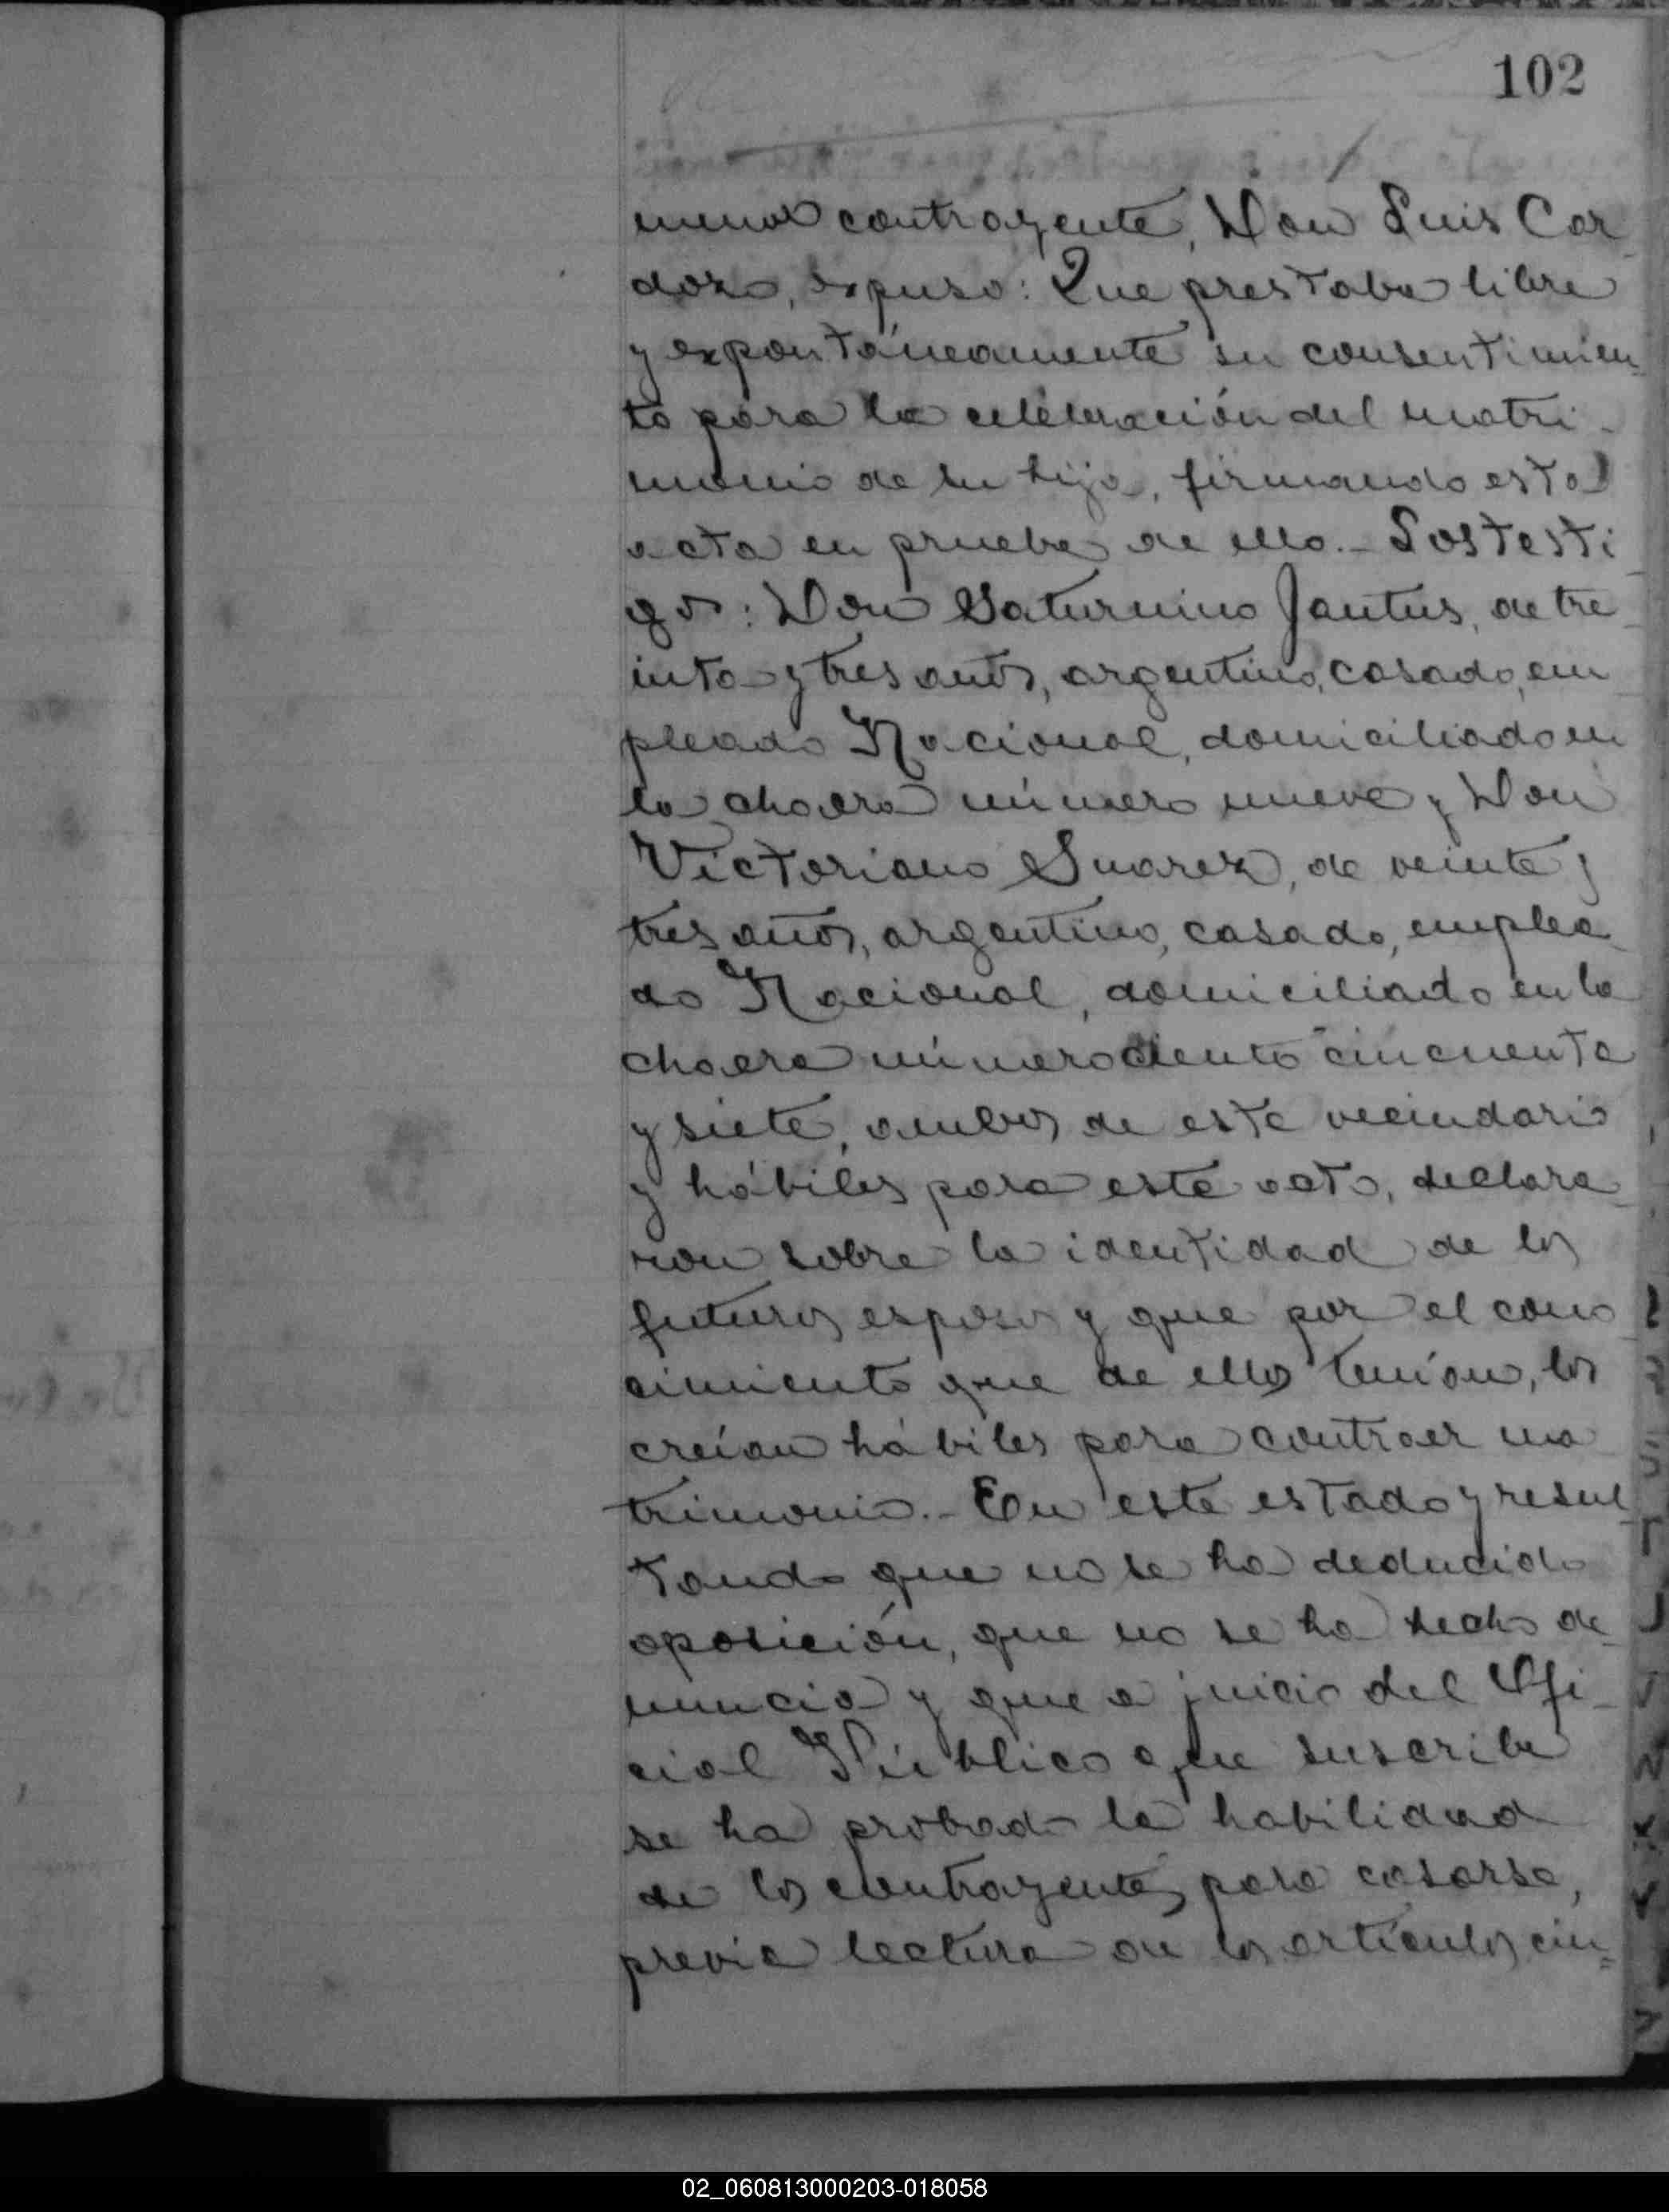 102
menor contrayente, Don Luis Car
dozo, expuso: Que prestaba libre
y expontáneamente su consentimien
to para la celebración del matri-
monio de su hija, firmando esta
acta en prueba de ello.- Los testi
gos: Don Saturnino Jantus, de tre
inta y tres años, argentino, casado, em
pleado Nacional, domiciliado en
la chacra número nueve y Don
Victoriano Suarez, de veinte y
tres años, argentino, casado, emplea
do Nacional, domiciliado en la
chacra número ciento cincuenta
y siete, ambos de este vecindario
y hábiles para este acto, declara
ron sobre la identidad de los
futuros esposos y que por el cono
cimiento que de ellos tenían, los
creían hábiles para contraer ma
trimonio.- En este estado y resul
tando que no se ha deducido
oposición, que no se ha hecho de
nuncia y que a juicio del Ofi-
cial Público que suscribe
se ha probado la habilidad
de los contrayentes para casarse,
previa lectura de los artículos cin=
02_060813000203-018058